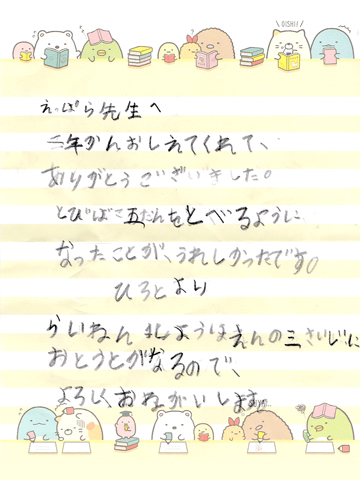 OISHI!
えっぱら先生へ
二年かんおしえてくれて、
ありがとうございました。
とびばこ五だんをとべるように
なったことが、うれしかったです。
ひろとより
らいねん しょうはえんの三さいじに
おとうとがなるので、
よろしくおねがいします。